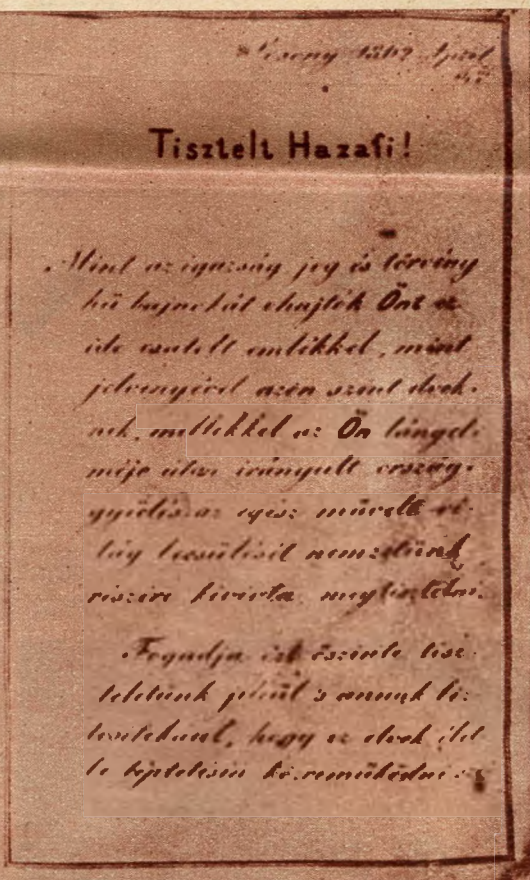 1862 April
Tisztelt Hazafi!
Mint az igazság jog és törvény
hű bajnokát óhajtók Önt ez
ide csatolt emlékkel, mint
jelvényével azon szent elvek-
nek, mellekkel az Ön lángel-
méje által irányult ország-
gyűlés az egész művelt vi-
lág becsülését nemzetünk
részére kivívta megtisztelni.
Fogadja ezt őszinte tisz-
teletünk jeléül s annak bi-
zosítékául, hogy ez elvek élet
be léptetésén közreműködni